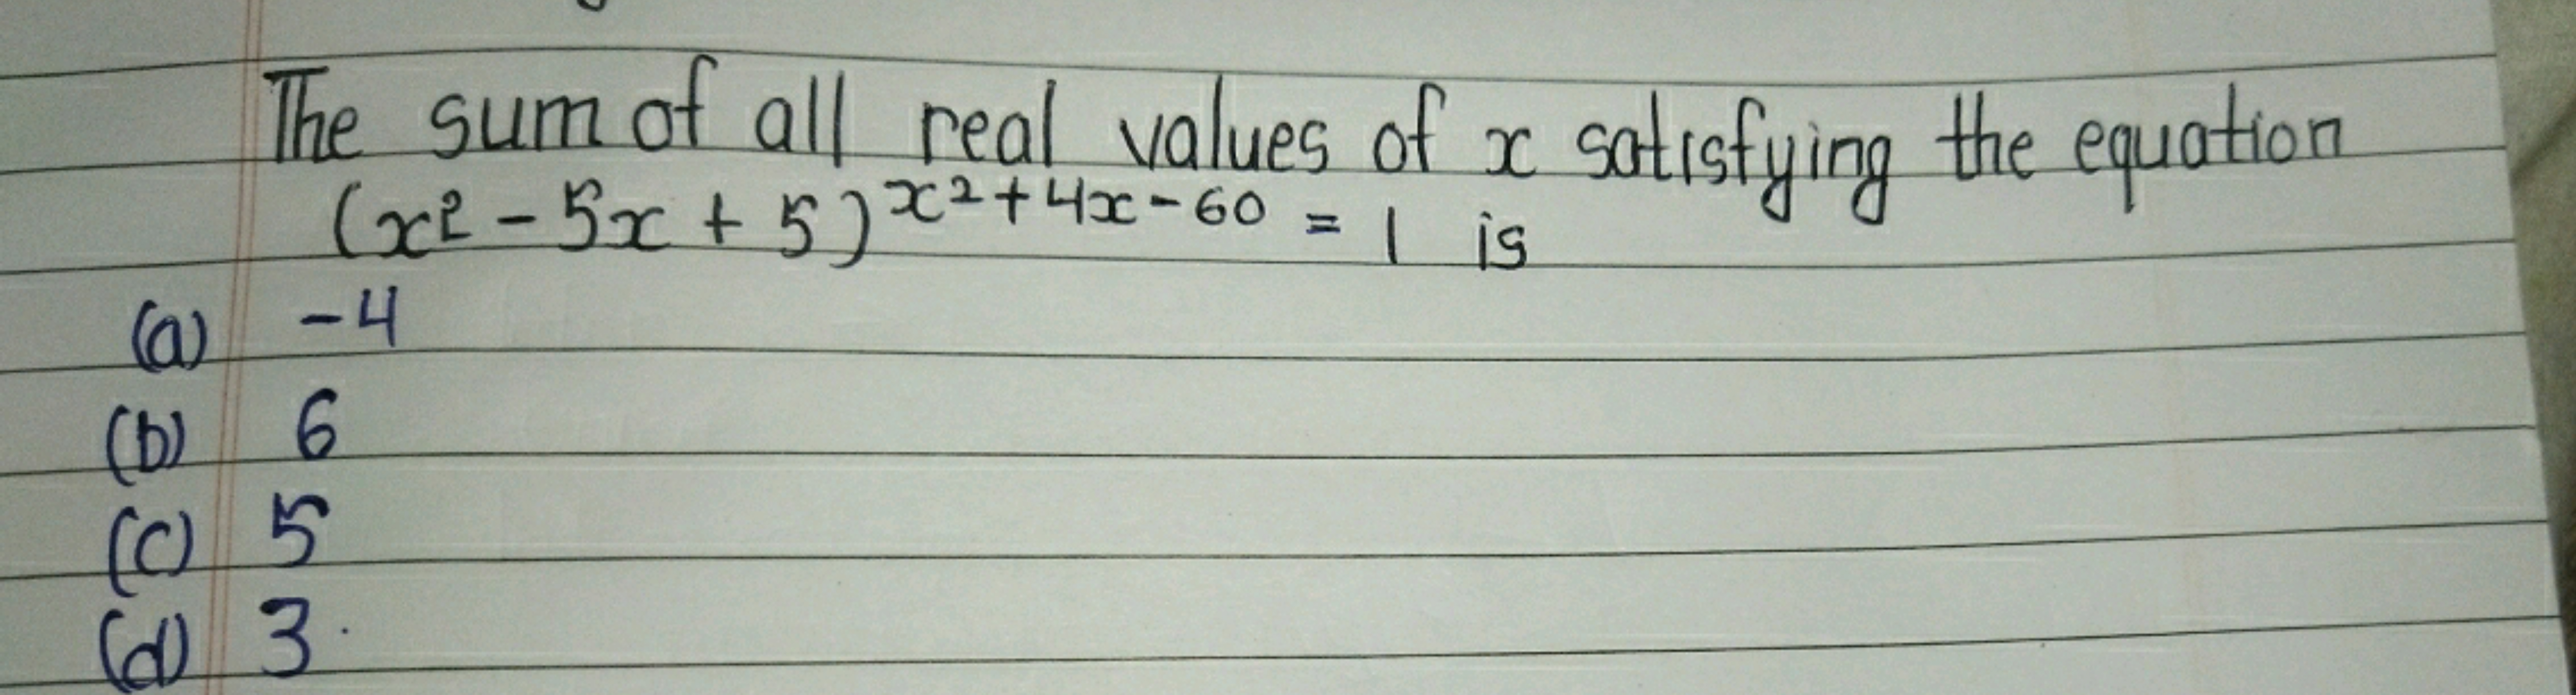 The sum of all real values of x satisfying the equation
(x² - 5x + 5)^{x² + 4x - 60} = 1 is
(a) -4
(b) 6
(c) 5
(d) 3.